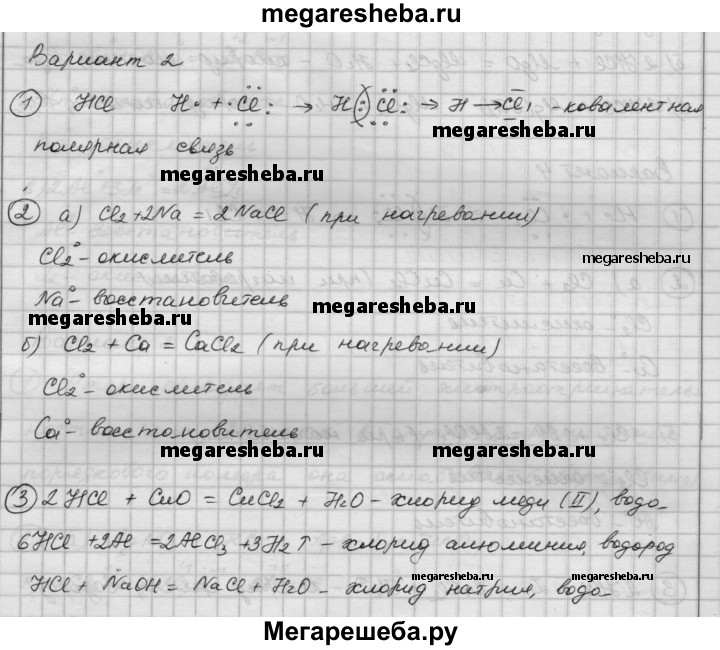 megaresheba.ru
Вариант 2
① HCl H· + ·Cl: → H:Cl: → H → Cl, - ковалентная
megaresheba.ru
полярная связь
megaresheba.ru
② а) Cl₂+2Na = 2NaCl (при нагревании)
Cl₂⁰ - окислитель
megaresheba.ru
Na⁰ - восстановитель
megaresheba.ru
megaresheba.ru
б) Cl₂ + Ca = CaCl₂ (при нагревании)
Cl₂⁰ - окислитель
Ca⁰ - восстановитель
megaresheba.ru
③ 2HCl + CuO = CuCl₂ + H₂O - хлорид меди (II), водо-
6HCl +2Al =2AlCl₃ +3H₂↑ - хлорид алюминия, водород
megaresheba.ru
megaresheba.ru
HCl + NaOH = NaCl + H₂O - хлорид натрия, водо-
Мегарешеба.ру